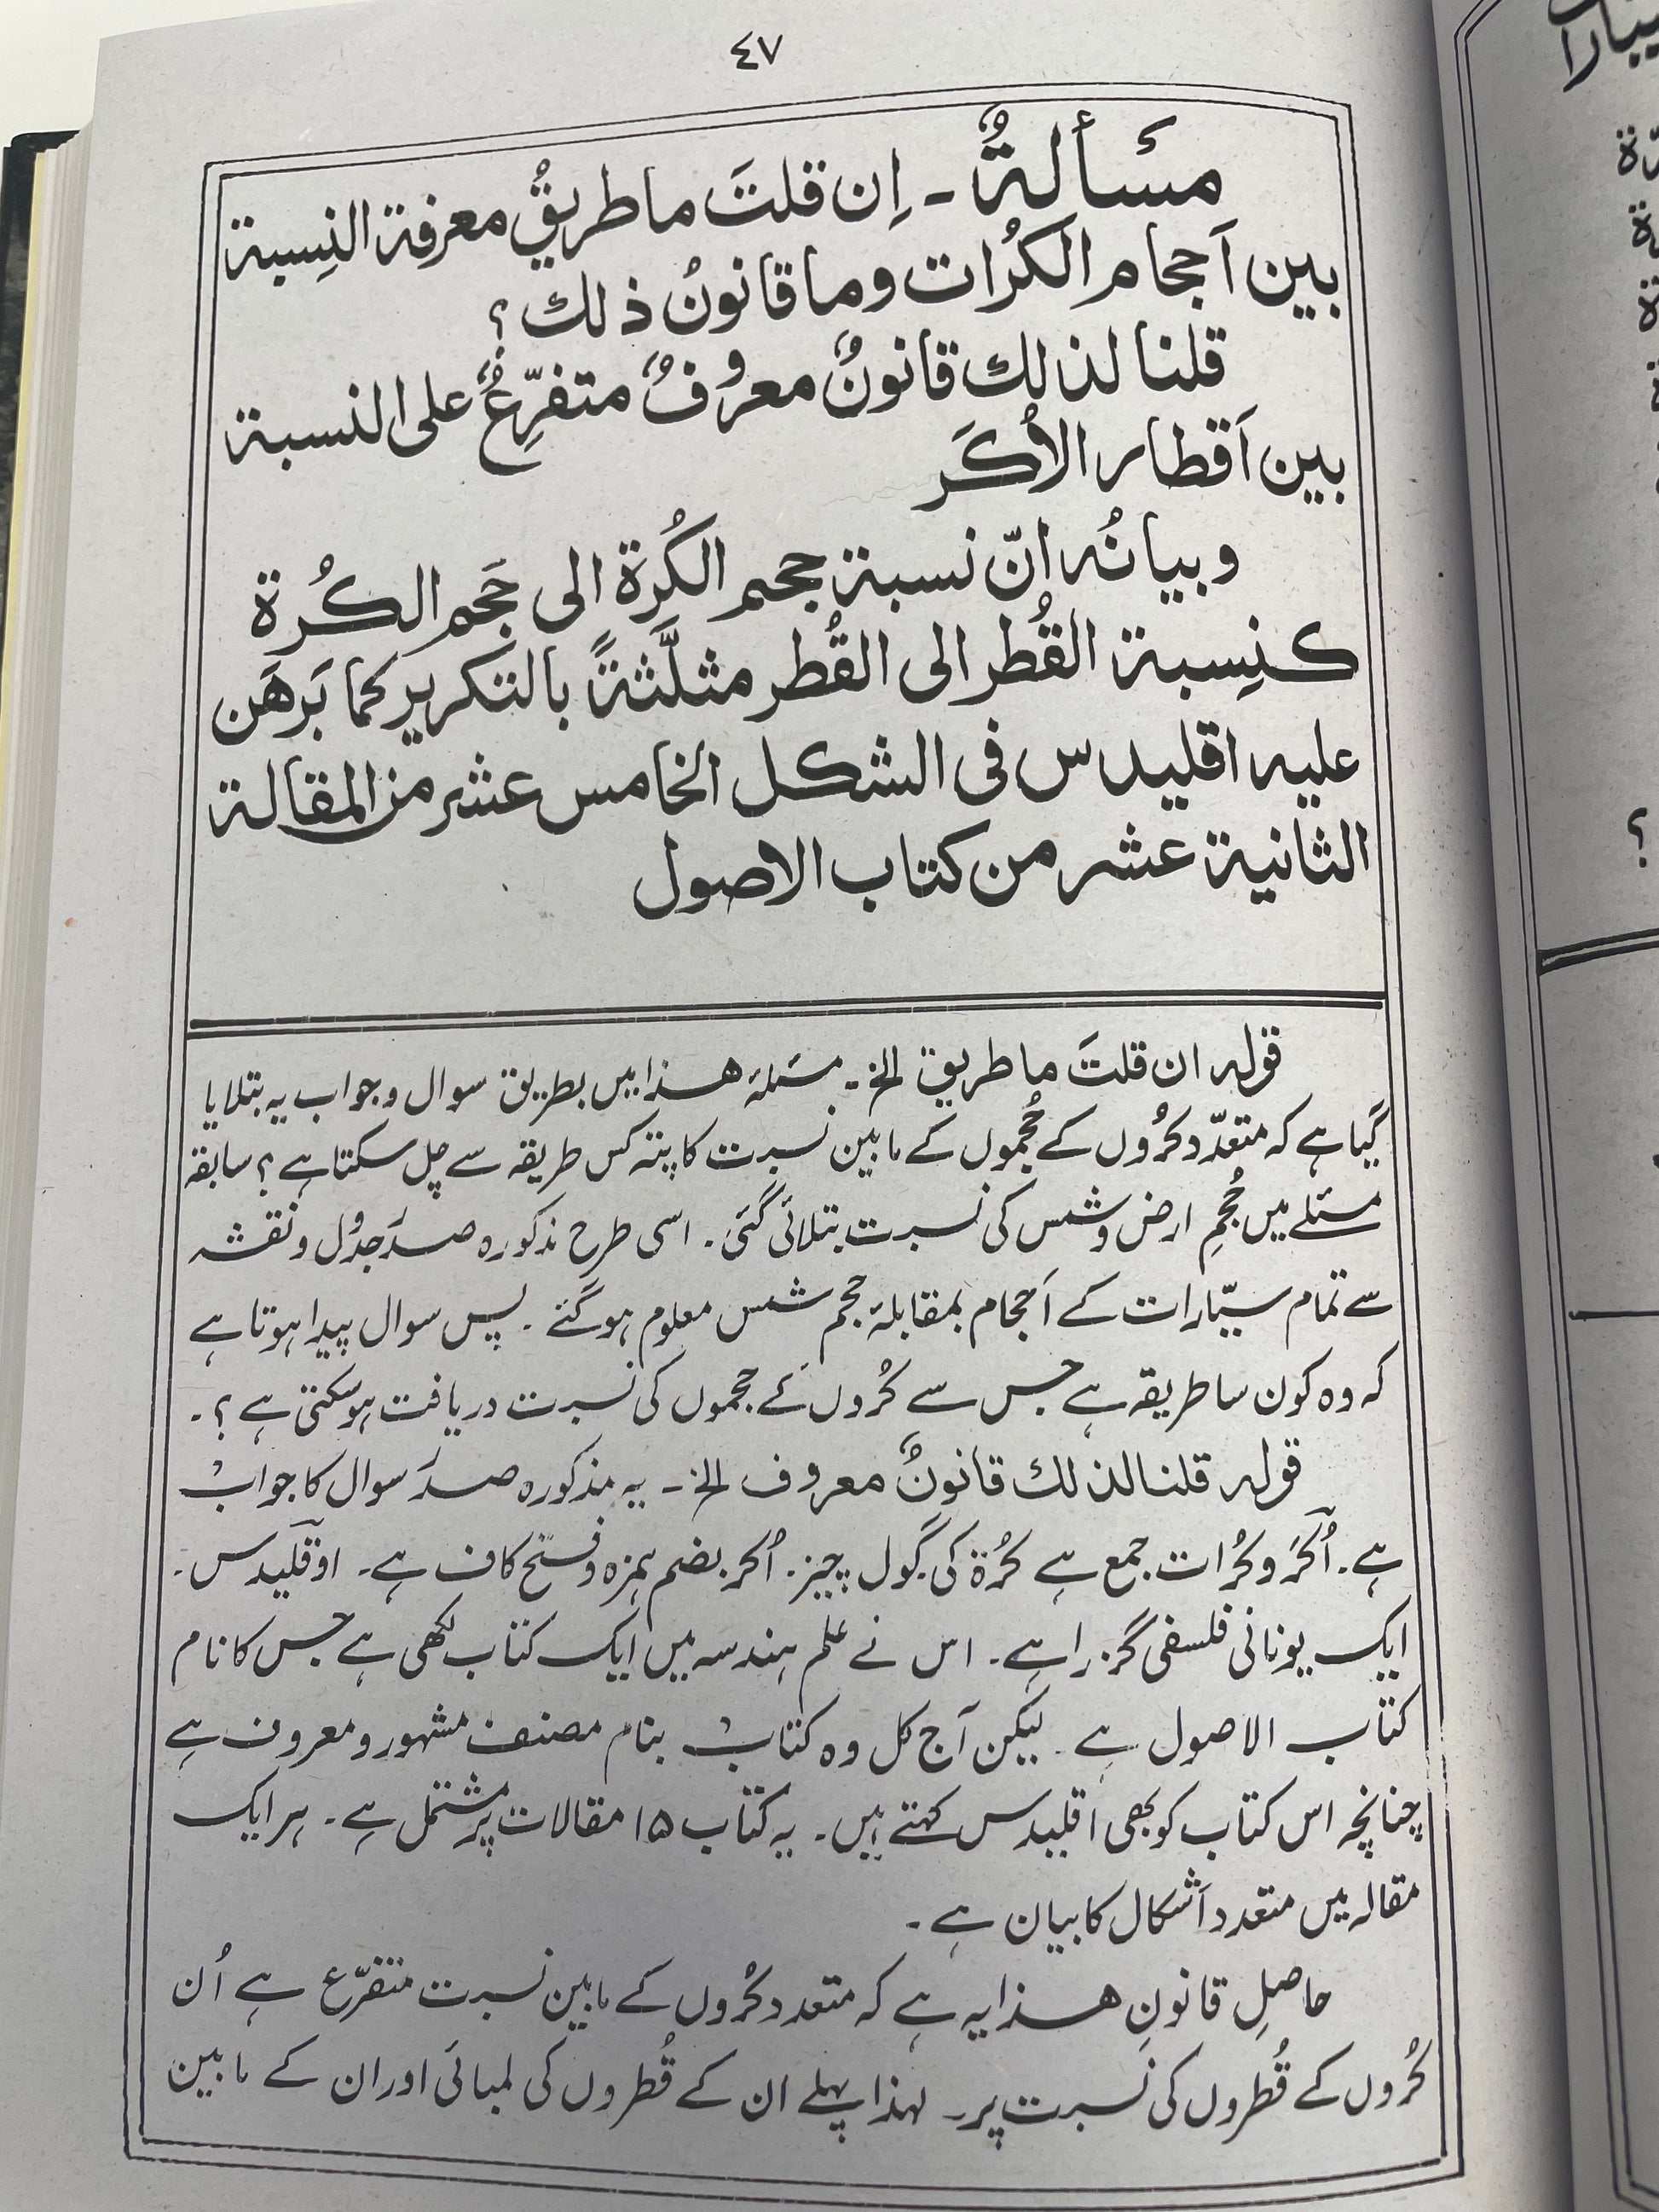 ٤٧
مسألةٌ - اِن قلتَ ما طريقُ معرفة النِسبة
بين اَحجام الكُرات وما قانونُ ذلك؟
قلنا لذلك قانونٌ معروفٌ متفرِّعٌ على النسبة
بين اَقطار الاُكَر
وبيانُه انّ نسبة حجم الكُرة الى حَجم الكُرة
كنِسبة القُطر الى القُطر مثلَّثةً بالتكرير كما بَرهَن
عليه اقليدس فى الشكل الخامس عشر من المقالة
الثانية عشر من كتاب الاصول
قوله ان قلتَ ما طريق الخ ـ مسئلہ ھذا میں بطریق سوال و جواب یہ بتلایا
گیا ہے کہ متعدّد کُروں کے حُجموں کے مابین نسبت کا پتہ کس طریقہ سے چل سکتا ہے؟ سابقہ
مسئلے میں حُجمِ ارض و شمس کی نسبت بتلائی گئی ۔ اسی طرح مذکورہ صدَر جدوَل و نقشہ
سے تمام سیّارات کے اَحجام بمقابلۂ حجم شمس معلوم ہوگئے ۔ پس سوال پیدا ہوتا ہے
کہ وہ کون سا طریقہ ہے جس سے کُروں کے حجموں کی نسبت دریافت ہوسکتی ہے؟ ۔
قوله قلنا لذلك قانونٌ معروف الخ ـ یہ مذکورہ صدَر سوال کا جواب
ہے ۔ اُکَر و کُرات جمع ہے کُرۃ کی ۔ گول چیز ۔ اُکر بضم ہمزہ و فتح کاف ہے ۔ اوقلیدس ۔
ایک یونانی فلسفی گزرا ہے ۔ اس نے علم ہندسہ میں ایک کتاب لکھی ہے جس کا نام
کتاب الاصول ہے ۔ لیکن آج کل وہ کتاب بنام مصنف مشہور و معروف ہے
چنانچہ اس کتاب کو بھی اقلیدس کہتے ہیں ۔ یہ کتاب ۱۵ مقالات پر مشتمل ہے ۔ ہر ایک
مقالہ میں متعدد اَشکال کا بیان ہے ۔
حاصلِ قانونِ ھذا یہ ہے کہ متعدد کُروں کے مابین نسبت متفرّع ہے اُن
کُروں کے قُطروں کی نسبت پر ۔ لہذا پہلے ان کے قُطروں کی لمبائی اور ان کے مابین